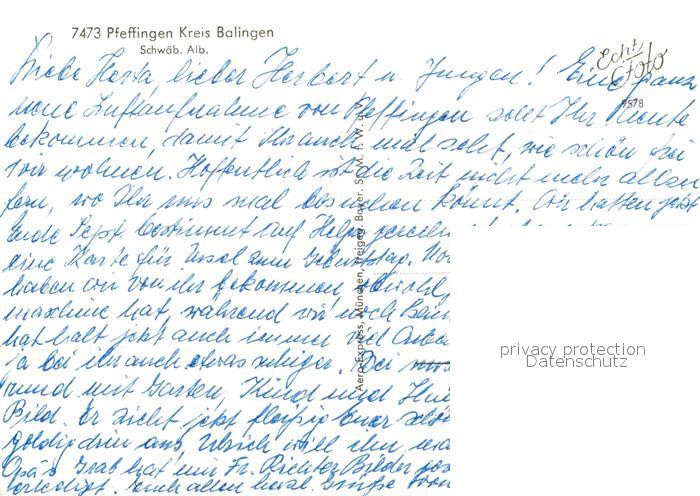 7473 Pfeffingen Kreis Balingen
Schwäb. Alb.
Echt Foto
9578
Liebe Herta, lieber Herbert u Jungen! Eine ganz
neue Luftaufnahme von Pfeffingen sollt Ihr heute
bekommen, damit Ihr auch mal seht, wie schön
wir wohnen. Hoffentlich ist die Zeit nicht mehr allzu
fern, wo Ihr uns mal besuchen könnt. Wir hatten jetzt
Ende Sept. bestimmt auf Helga
eine Karte für Ursel zum Geburtstag.
haben wir von ihr bekommen, obwohl
maschine hat, während wir noch
hat halt jetzt auch immer viel
ja bei ihr auch etwas ruhiger. Bei
rund mit Garten, Kind und
Bild. Er zieht jetzt fleißig Euer
goldig drin aus, Ulrich will ihn
Opa's Grab hat mir Fr. Richter Bilder
Euch allen herzl. Grüße
Aero-Express, München, Freigeg. Bayer. St. M. f. W. u. V.
privacy protection
Datenschutz